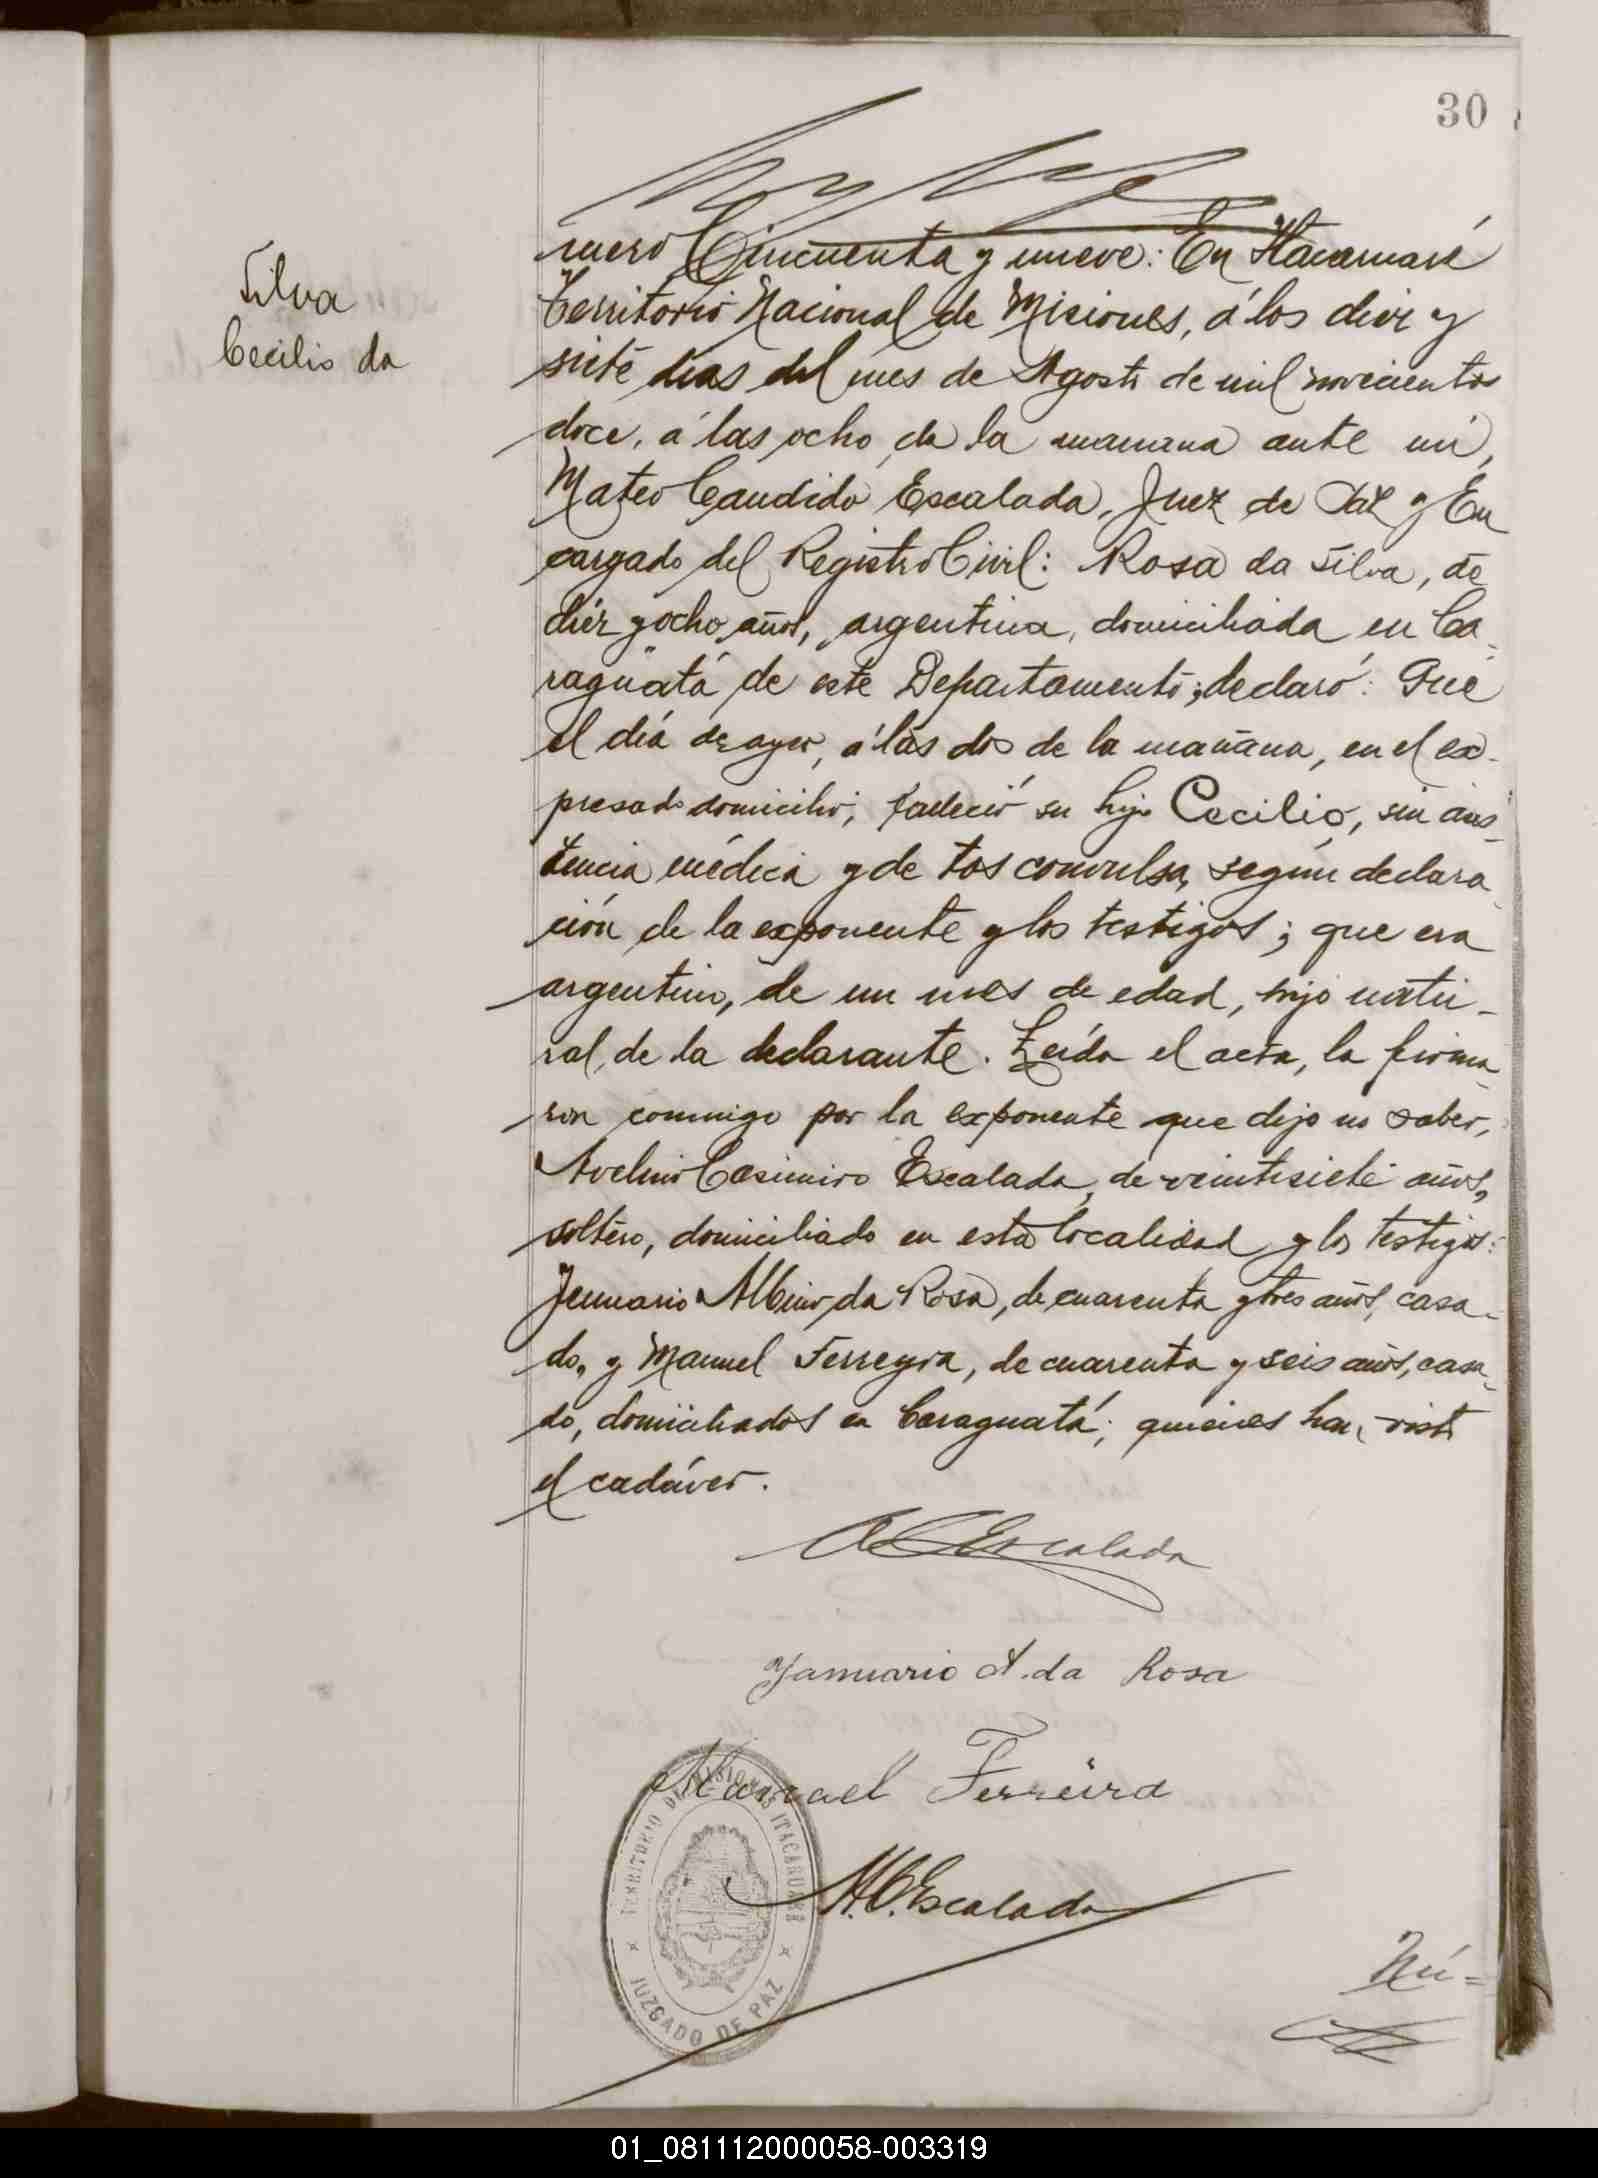 30
Silva
Cecilio da
mero Cincuenta y nueve: En Itacaruaré
Territorio Nacional de Misiones, á los diez y
siete dias del mes de Agosto de mil novecientos
doce, á las ocho de la manana ante mi,
Mateo Candido Escalada, Juez de Paz y En
cargado del Registro Civil: Rosa da Silva, de
diez y ocho años, argentina, domiciliada en Ca-
raguatá de este Departamento; declaró: Que
el día de ayer, á las dos de la mañana, en el ex-
presado domicilio, falleció su hijo Cecilio, sin asis-
tencia médica y de tos convulsa, según declara-
ción de la exponente y los testigos; que era
argentino, de un mes de edad, hijo natu-
ral, de la declarante. Leída el acta, la firma-
ron conmigo por la exponente que dijo no saber,
Avelino Casimiro Escalada, de veintisiete años,
soltero, domiciliado en esta localidad y los testigos:
Jenuario Albino da Rosa, de cuarenta y tres años, casa-
do, y Manuel Ferreyra, de cuarenta y seis años, casa-
do, domiciliados en Caraguatá; quienes han visto
el cadáver.
A C Escalada
Januario A. da Rosa
Manael Ferreira
M. C. Escalada
TERRITORIO DE MISIONES ITACARUARÉ
JUZGADO DE PAZ
Nú=
01_081112000058-003319